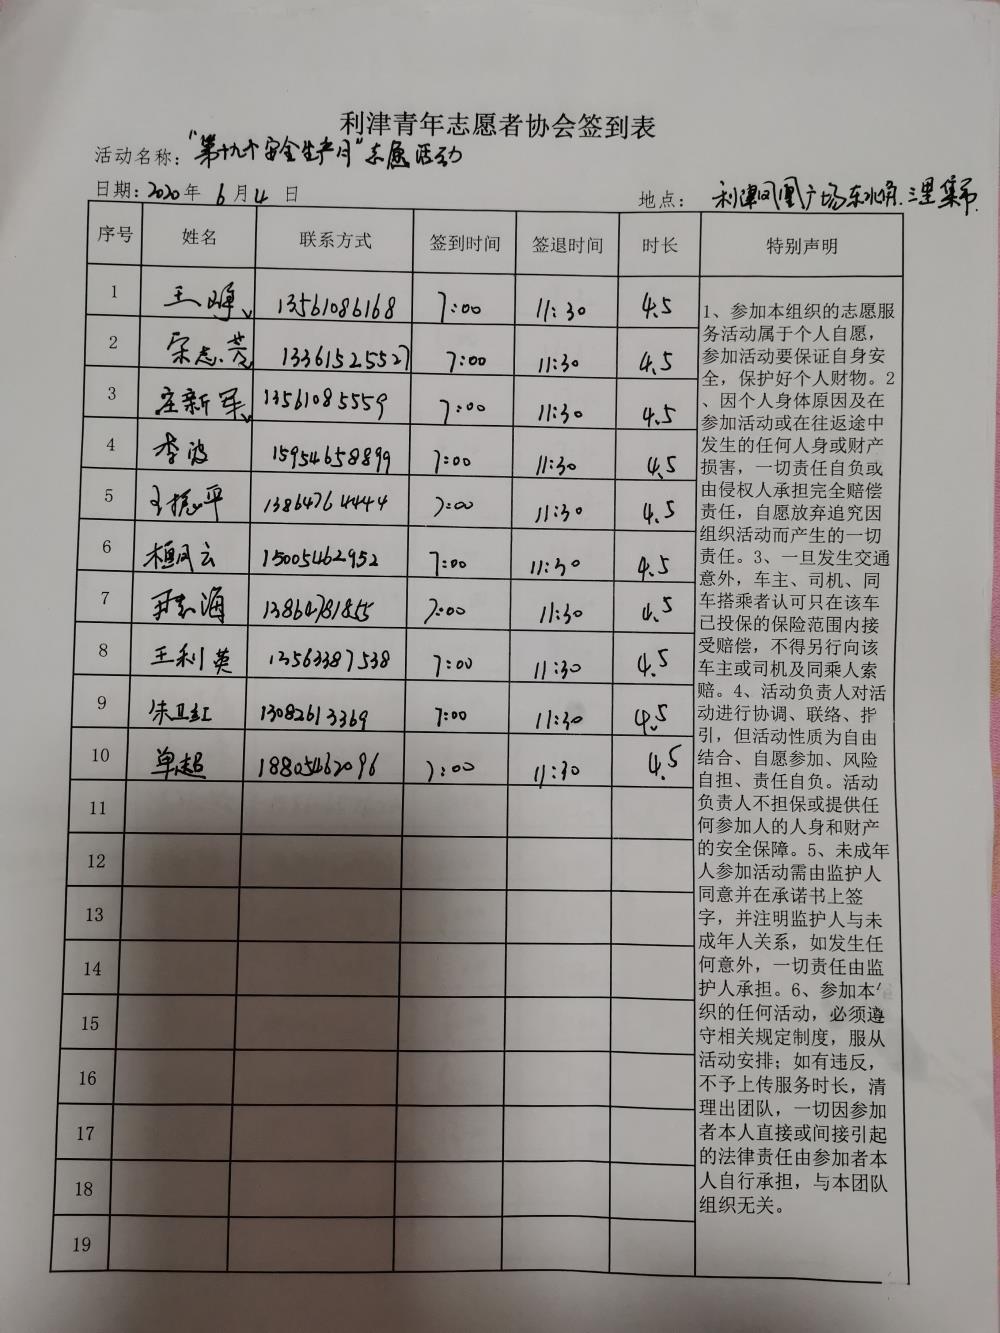 利津青年志愿者协会签到表
活动名称："第十九个安全生产月"志愿活动
日期：2020年6月4日 地点：利津凤凰广场东北角.三里集市.
序号 姓名 联系方式 签到时间 签退时间 时长 特别声明
1 王峰 13561086168 7:00 11:30 4.5
2 宋志芳 13361525527 7:00 11:30 4.5
3 庄新军 13561085559 7:00 11:30 4.5
4 李波 15954658899 7:00 11:30 4.5
5 王振平 13864764444 7:00 11:30 4.5
6 桓凤云 15005462952 7:00 11:30 4.5
7 志海 13864781855 7:00 11:30 4.5
8 王利英 13563387538 7:00 11:30 4.5
9 朱卫红 13082613369 7:00 11:30 4.5
10 单超 18805462096 7:00 11:30 4.5
11
12
13
14
15
16
17
18
19
1、参加本组织的志愿服
务活动属于个人自愿，
参加活动要保证自身安
全，保护好个人财物。2
、因个人身体原因及在
参加活动或在往返途中
发生的任何人身或财产
损害，一切责任自负或
由侵权人承担完全赔偿
责任，自愿放弃追究因
组织活动而产生的一切
责任。3、一旦发生交通
意外，车主、司机、同
车搭乘者认可只在该车
已投保的保险范围内接
受赔偿，不得另行向该
车主或司机及同乘人索
赔。4、活动负责人对活
动进行协调、联络、指
引，但活动性质为自由
结合、自愿参加、风险
自担、责任自负。活动
负责人不担保或提供任
何参加人的人身和财产
的安全保障。5、未成年
人参加活动需由监护人
同意并在承诺书上签
字，并注明监护人与未
成年人关系，如发生任
何意外，一切责任由监
护人承担。6、参加本
织的任何活动，必须遵
守相关规定制度，服从
活动安排；如有违反，
不予上传服务时长，清
理出团队，一切因参加
者本人直接或间接引起
的法律责任由参加者本
人自行承担，与本团队
组织无关。